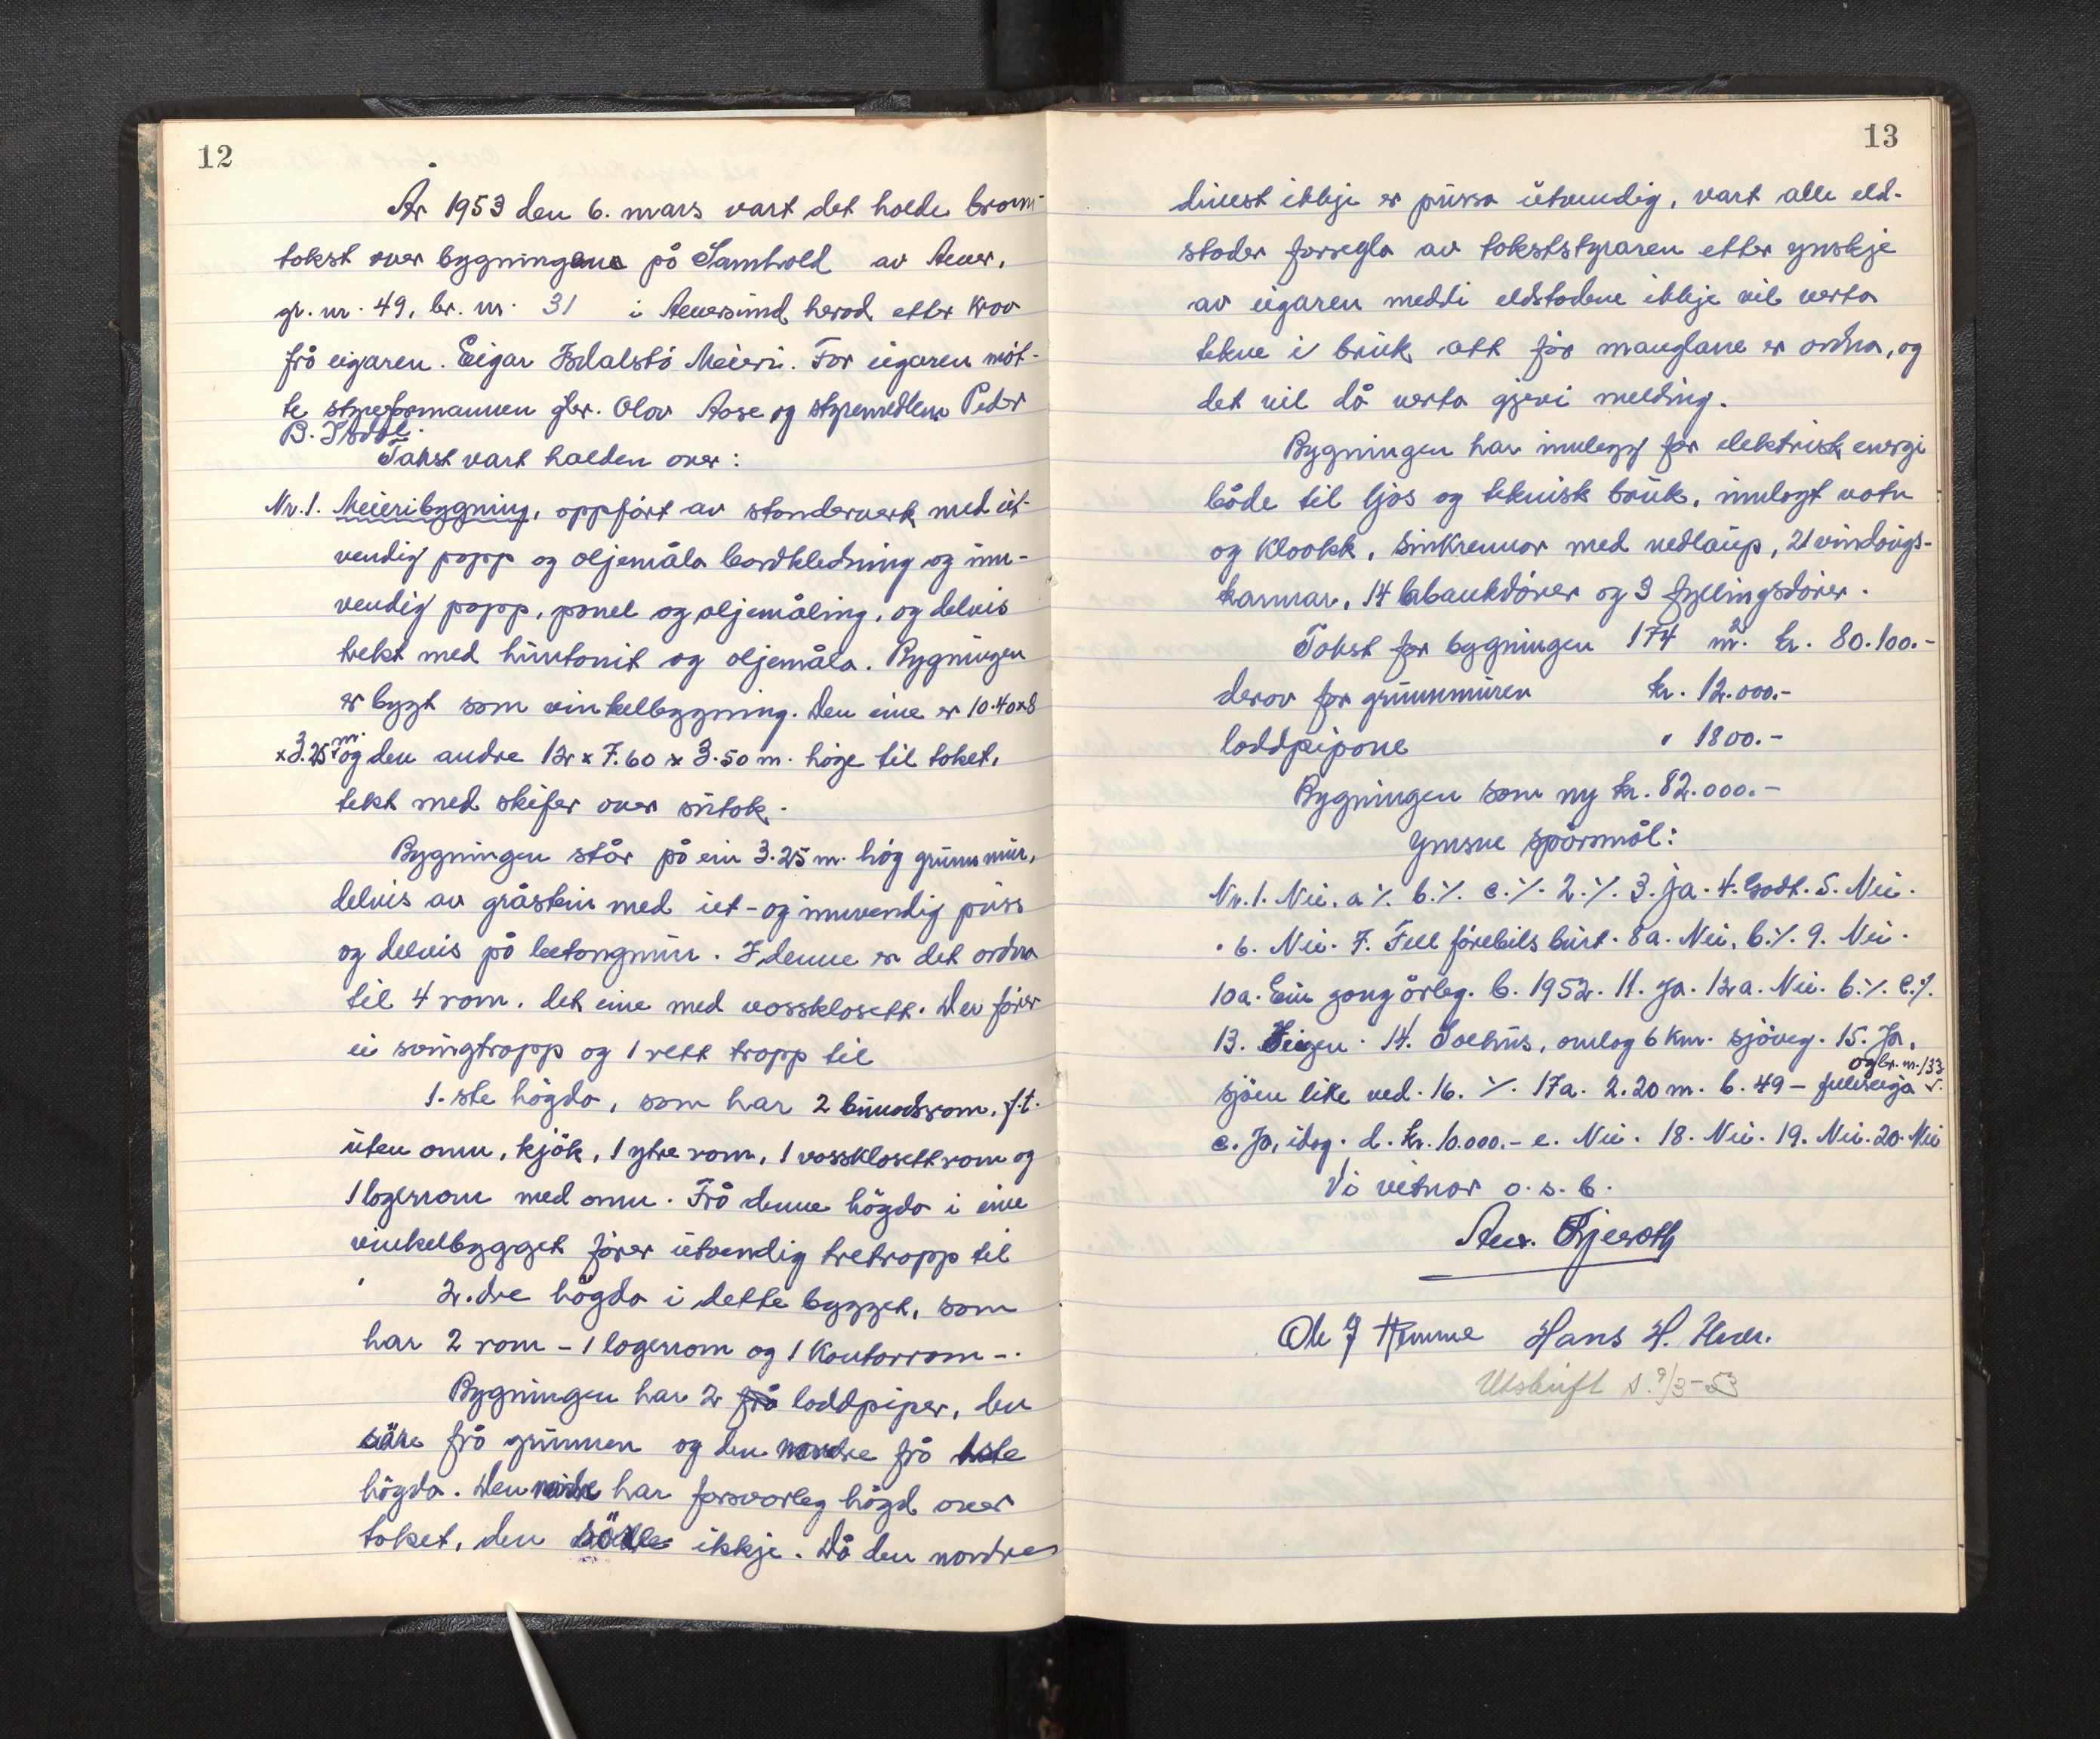 12
År 1953 den 6. mars vart det halde brann-
takst over bygningane på Samhald av Alver,
gr. nr. 49, br. nr. 31 i Alversund herad etter krav
frå eigaren. Eigar Isdalstø Meieri. For eigaren møt-
te styreformannen gbr. Olav Aase og styremedlem Peder
B. Isdal.
Takst vart halden over:
Nr. 1. Meieribygning, oppført av standerverk med ut-
vendig papp og oljemåla bordkledning og inn-
vendig papp, panel og oljemåling, og delvis
trekt med huntonit og oljemåla. Bygningen
er bygt som vinkelbygning. Den eine er 10.40 x 8
x 3.25 m. og den andre 12 x 7.60 x 3.50 m. høge til taket,
tekt med skifer over sutak.
Bygningen står på ein 3.25 m. høg grunnmur,
delvis av gråstein med ut- og innvendig puss
og delvis på betongmur. I denne er det ordna
til 4 rom, det eine med vassklosett. Der fører
ei svingtrapp og 1 rett trapp til
1.ste høgda, som har 2 bunadsrom, f.t.
uten omn, kjøk, 1 ytre rom, 1 vassklosettrom og
1 lagerrom med omn. Frå denne høgda i eine
vinkelbygget fører utvendig tretrapp til
2.dre høgda i dette bygget, som
har 2 rom – 1 lagerrom og 1 kontorrom –.
Bygningen har 2 frå loddpiper, den
søre frå grunnen og den nordre frå 1ste
høgda. Den nordre har forsvarleg høgd over
taket, den søre ikkje. Då den nordre
13
dinest ikkje er pussa utvendig, vart alle eld-
stader forsegla av takststyraren etter ynskje
av eigaren meddi eldstadene ikkje vil verta
tekne i bruk att før manglane er ordna, og
det vil då verta gjevi melding.
Bygningen har innlegg for elektrisk energi
både til ljos og teknisk bruk, innlagt vatn
og kloakk, sinkrennor med nedlaup, 21 vindaugs-
karmar, 14 labankdører og 3 fyllingsdører.
Takst for bygningen 174 m². kr. 80.100.-
derav for grunnmuren kr. 12.000.-
loddpipone " 1800.-
Bygningen som ny kr. 82.000.-
Ymsne spørsmål:
Nr. 1. Nei. a ./. b. ./. c. ./. 2. ./. 3. Ja. 4. Godt. 5. Nei.
" 6. Nei. 7. Fell førebils burt. 8a. Nei, b. ./. 9. Nei.
10a. Ein gong årleg. b. 1952. 11. Ja. 12a. Nei. b. ./. c. ./.
13. Eigen. 14. Soltus, omlag 6 km. sjøveg. 15. Ja,
og br. nr. 133
sjøen like ved. 16. ./. 17a. 2.20 m. b. 49 –
c. Ja, idag. d. kr. 10.000.- e. Nei. 18. Nei. 19. Nei. 20. Nei
Vi vitnar o. s. b.
Ole J Hans H.
Utskrift s. 9/3-53